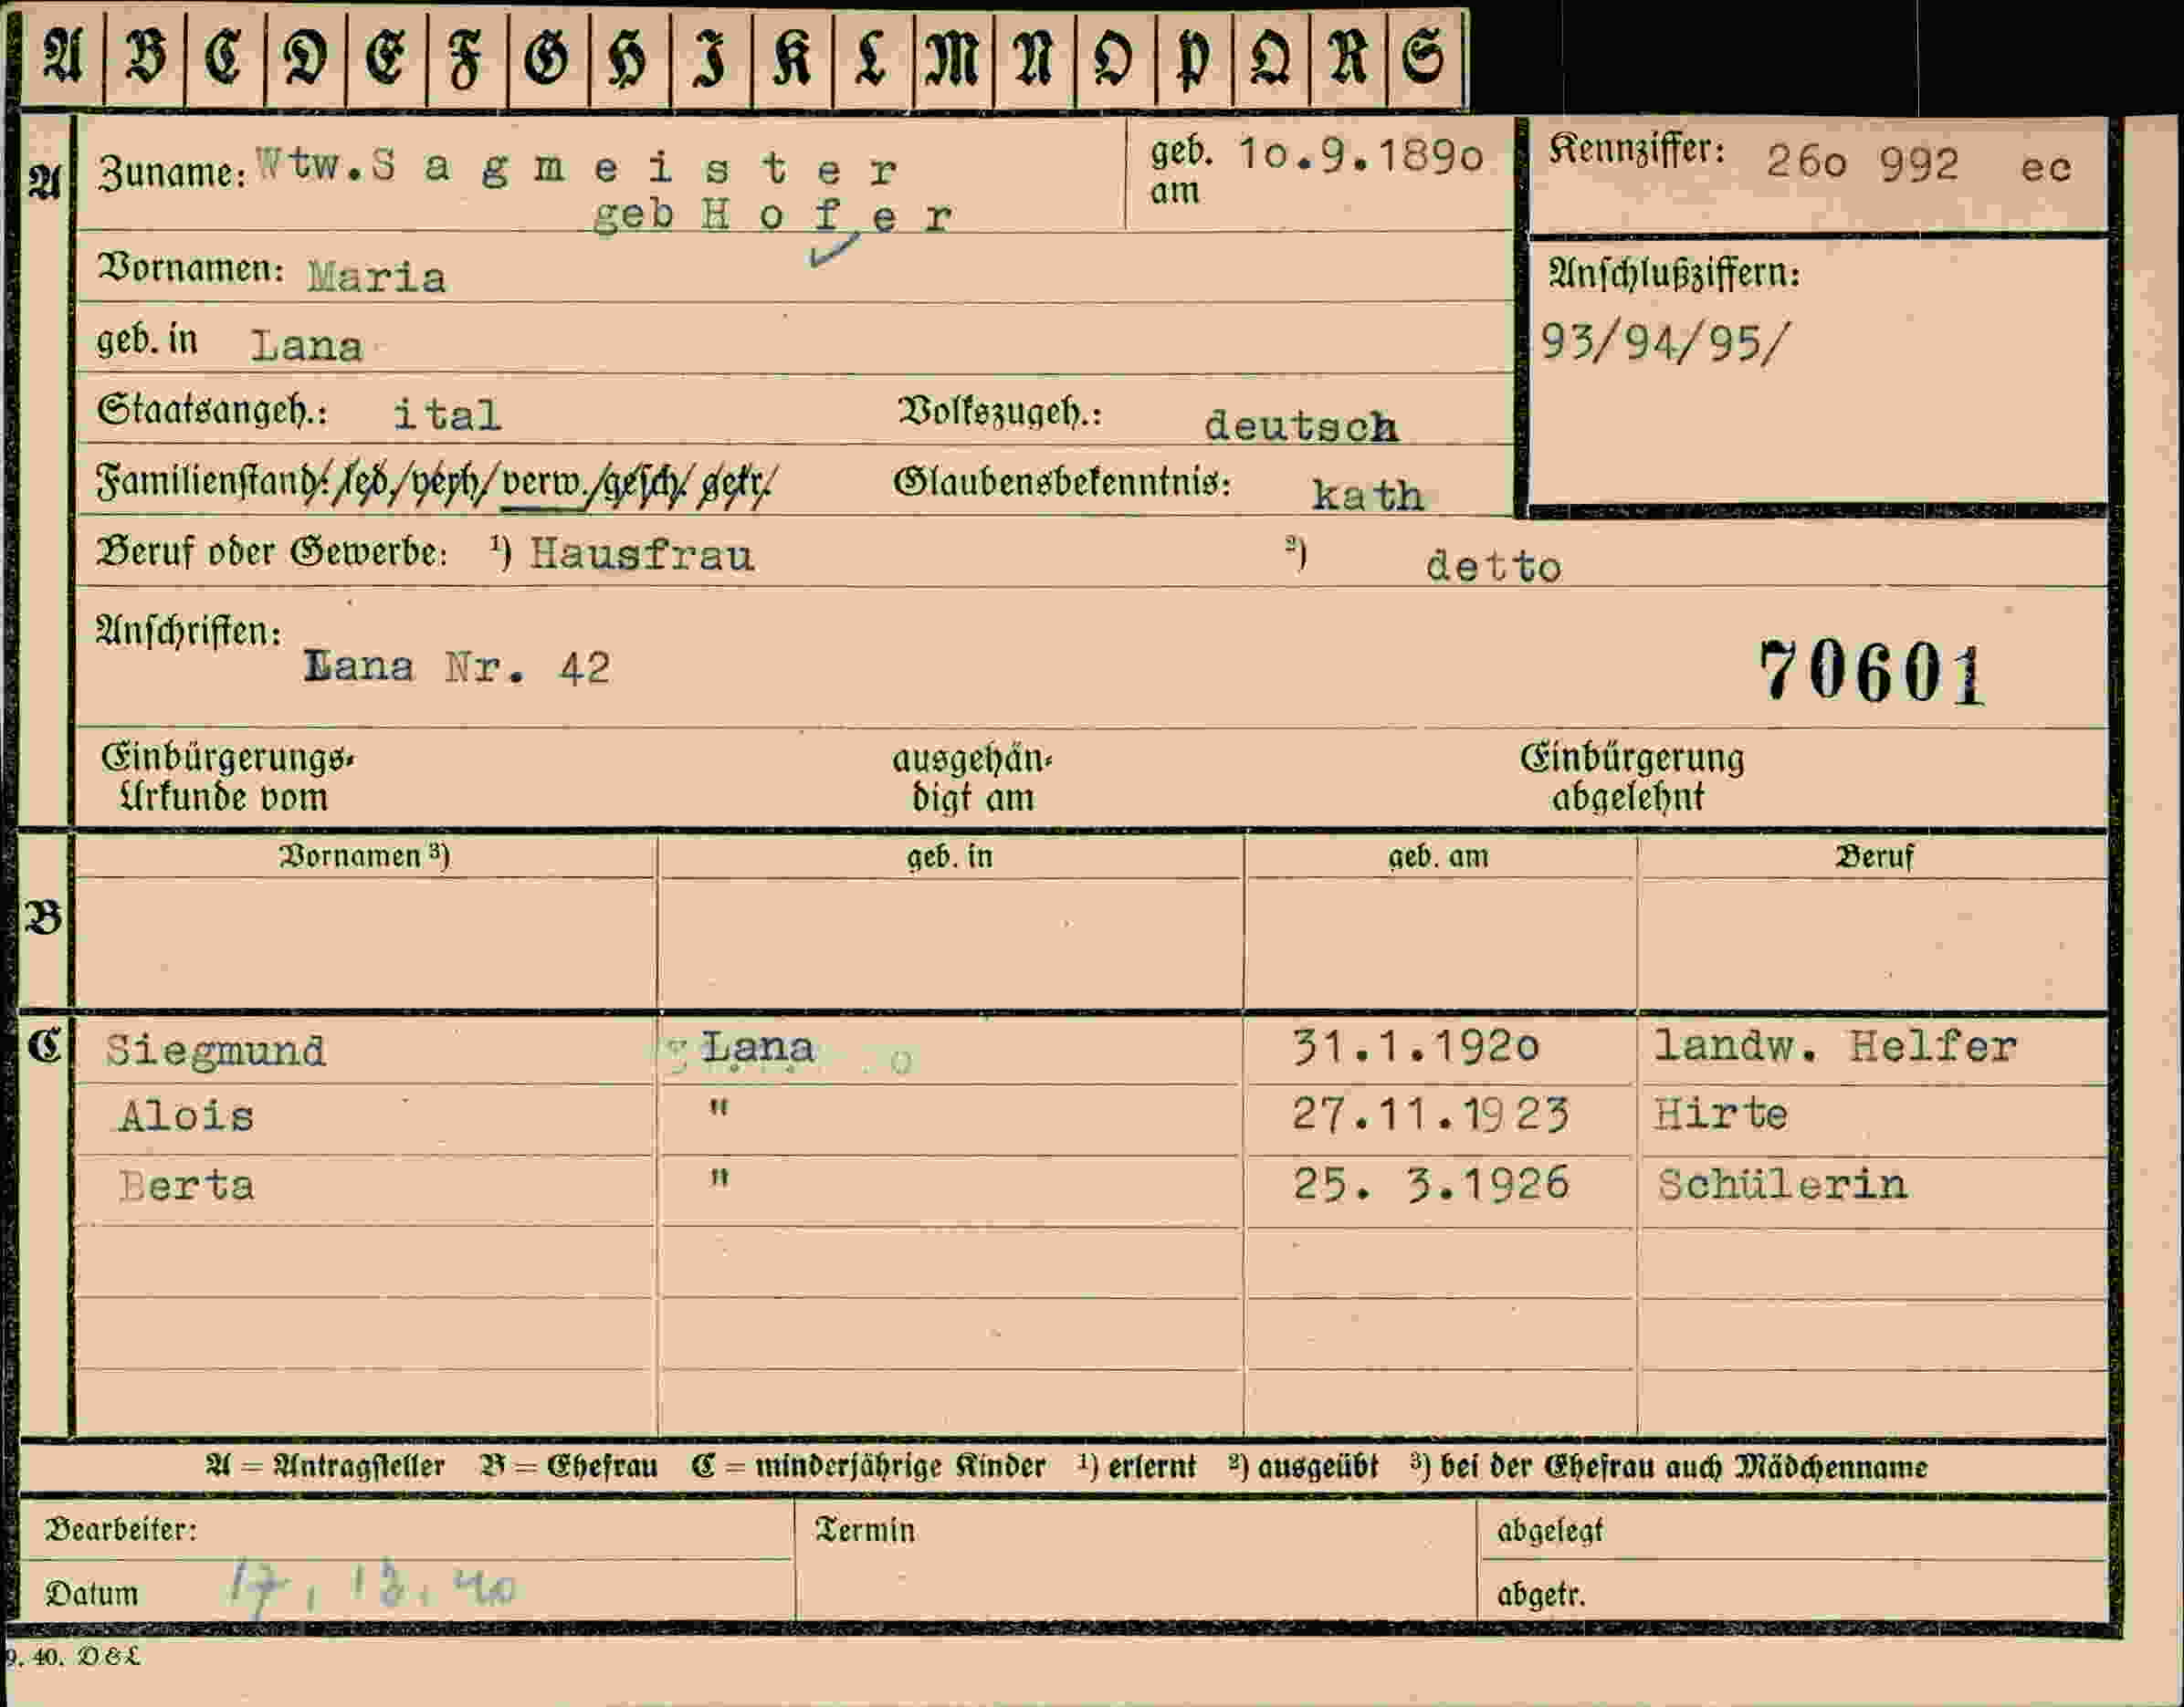 A B C D E F G H I K L M N O P Q R S
A Zuname: Wtw. S a g m e i s t e r geb. am 10.9.1890 Kennziffer: 260 992 ec
geb H o f e r
Vornamen: Maria Anschlußziffern:
geb. in Lana 93/94/95/
Staatsangeh.: ital Volkszugeh.: deutsch
Familienstand: led./verh/verw./gesch/ getr. Glaubensbekenntnis: kath
Beruf oder Gewerbe: ¹) Hausfrau ²) detto
Anschriften:
Lana Nr. 42 70601
Einbürgerungs- ausgehän- Einbürgerung
Urkunde vom digt am abgelehnt
Vornamen ³) geb. in geb. am Beruf
B
C Siegmund Lana 31.1.1920 landw. Helfer
Alois " 27.11.1923 Hirte
Berta " 25. 3.1926 Schülerin
A = Antragsteller B = Ehefrau C = minderjährige Kinder ¹) erlernt ²) ausgeübt ³) bei der Ehefrau auch Mädchenname
Bearbeiter: Termin abgelegt
Datum abgetr.
9. 40. D & L